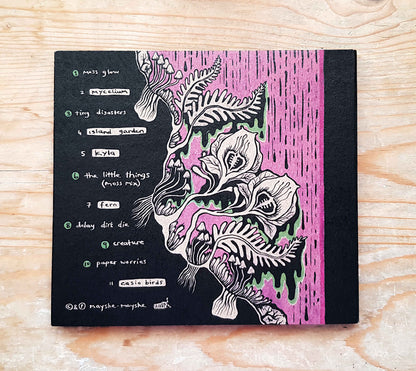 1 moss glow
2 mycelium
3 tiny disasters
4 island garden
5 kyla
6 the little things
(moss mix)
7 fern
8 delay dirt die
9 creature
10 paper worries
11 casio birds
© & ℗ mayshe-mayshe